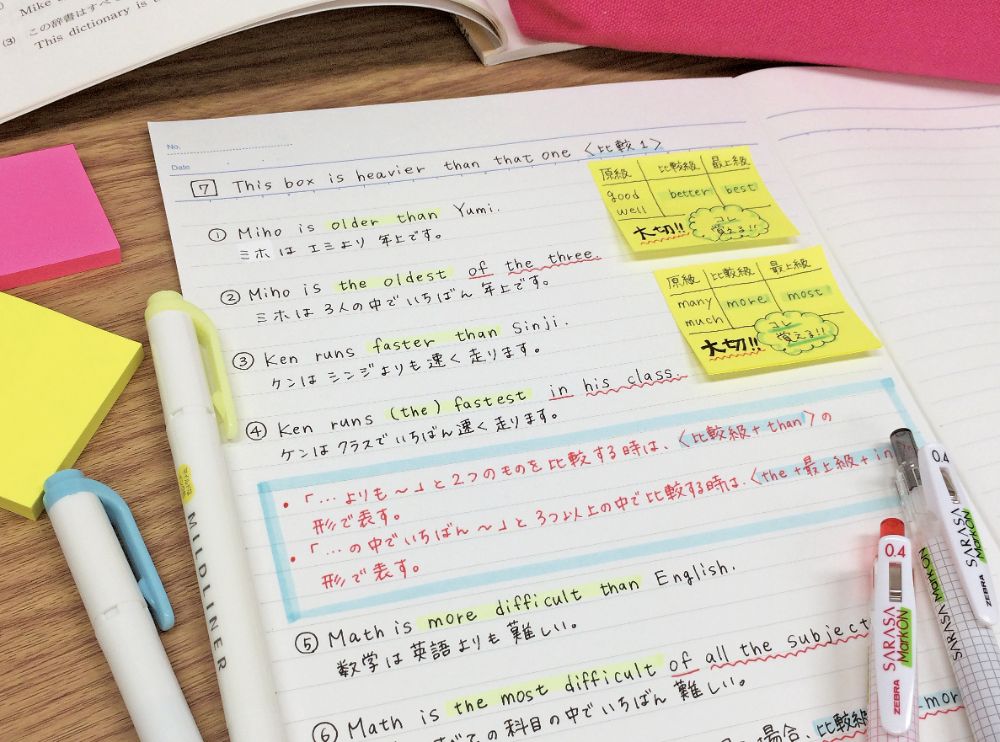 Mike
(3) この辞書はすべ
This dictionary is t
No.
Date
7 This box is heavier than that one 〈比較1〉
① Miho is older than Yumi.
ミホ は エミより 年上です。
② Miho is the oldest of the three.
ミホ は 3人の中でいちばん 年上です。
③ Ken runs faster than Sinji.
ケンは シンジよりも 速く 走ります。
④ Ken runs (the) fastest in his class.
ケンは クラスでいちばん 速く 走ります。
原級 比較級 最上級
good better best
well
大切!! コレ
覚える!!
原級 比較級 最上級
many more most
much
大切!! コレ
覚える!!
・「…よりも〜」と2つのものを比較する時は、〈比較級+than〉の
形で表す。
・「…の中でいちばん〜」と3つ以上の中で比較する時は、〈the+最上級+in
形で表す。
⑤ Math is more difficult than English.
数学は英語よりも 難しい。
⑥ Math is the most difficult of all the subject
の科目の中でいちばん 難しい。
場合、比較級 more
MILDLINER
0.4
SARASA MarkON
ZEBRA
0.4
SARASA MarkON
ZEBRA
SARASA MarkON